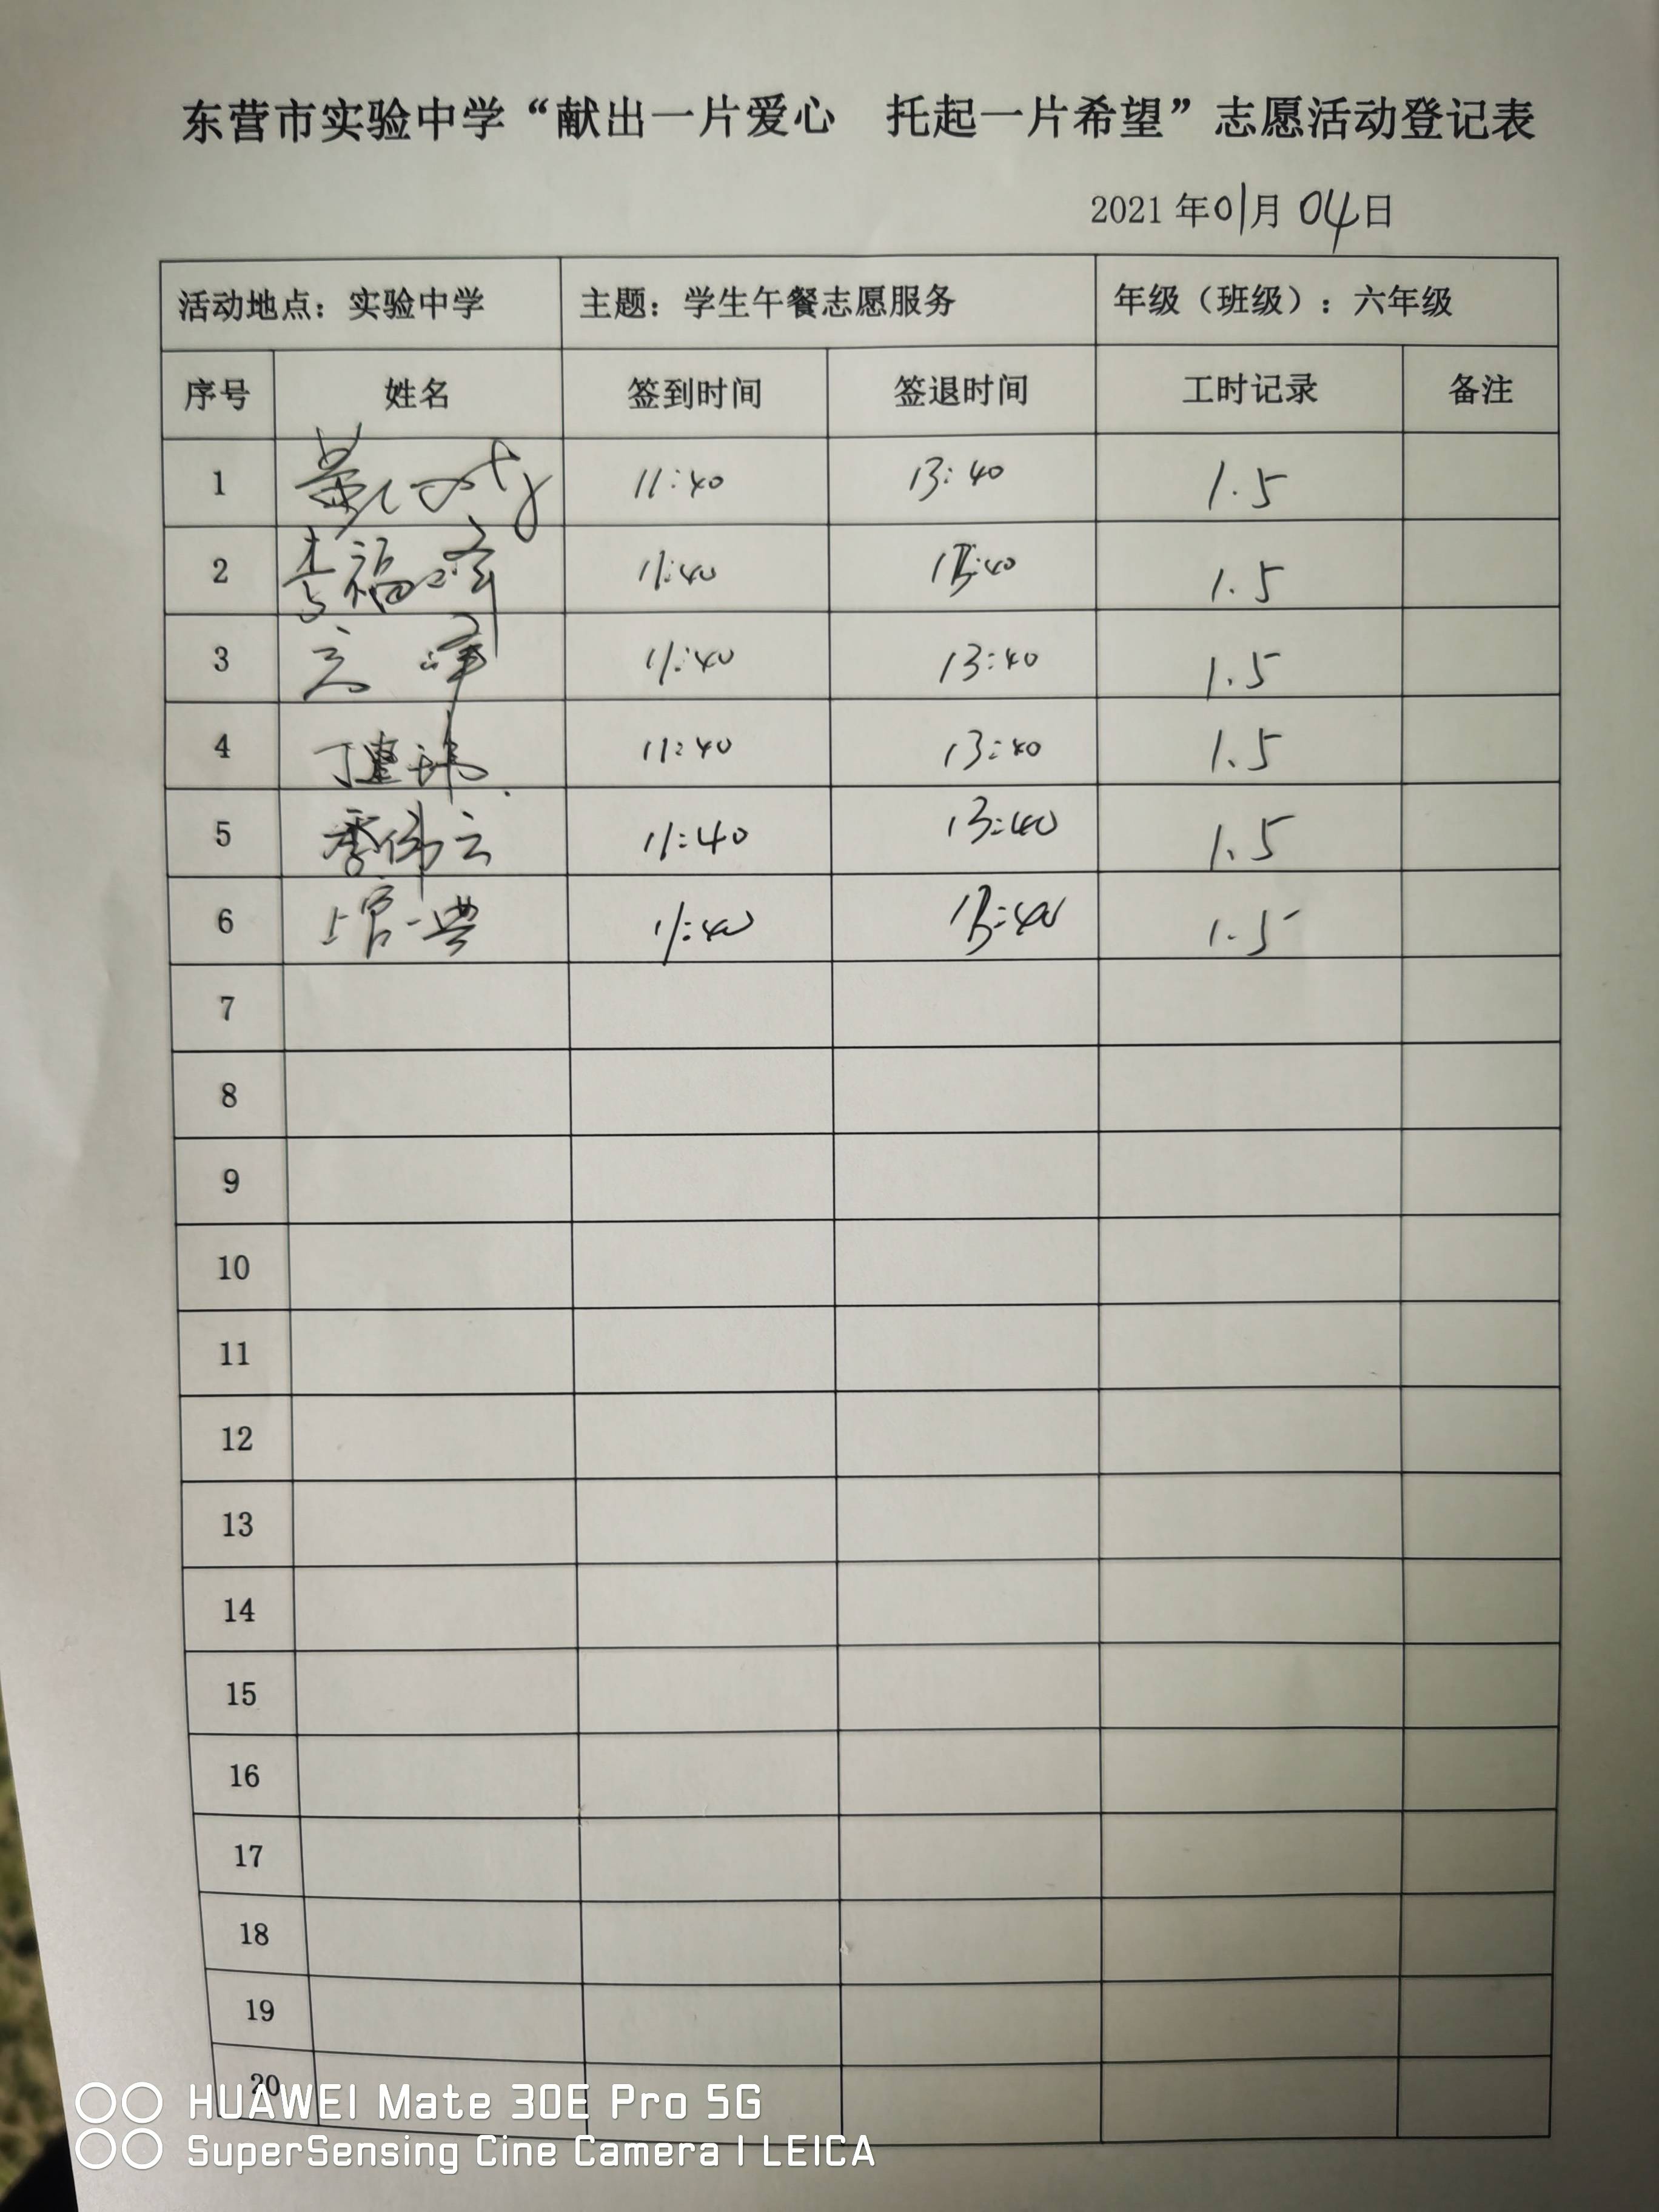 东营市实验中学“献出一片爱心 托起一片希望”志愿活动登记表
2021 年01月 04日
活动地点：实验中学 主题：学生午餐志愿服务 年级（班级）：六年级
序号 姓名 签到时间 签退时间 工时记录 备注
1 11:40 13:40 1.5
2 李福峰 11:40 13:40 1.5
3 11:40 13:40 1.5
4 丁建 11:40 13:40 1.5
5 季伟云 11:40 13:40 1.5
6 上官一典 11:40 13:40 1.5
7
8
9
10
11
12
13
14
15
16
17
18
19
20
HUAWEI Mate 30E Pro 5G
SuperSensing Cine Camera | LEICA